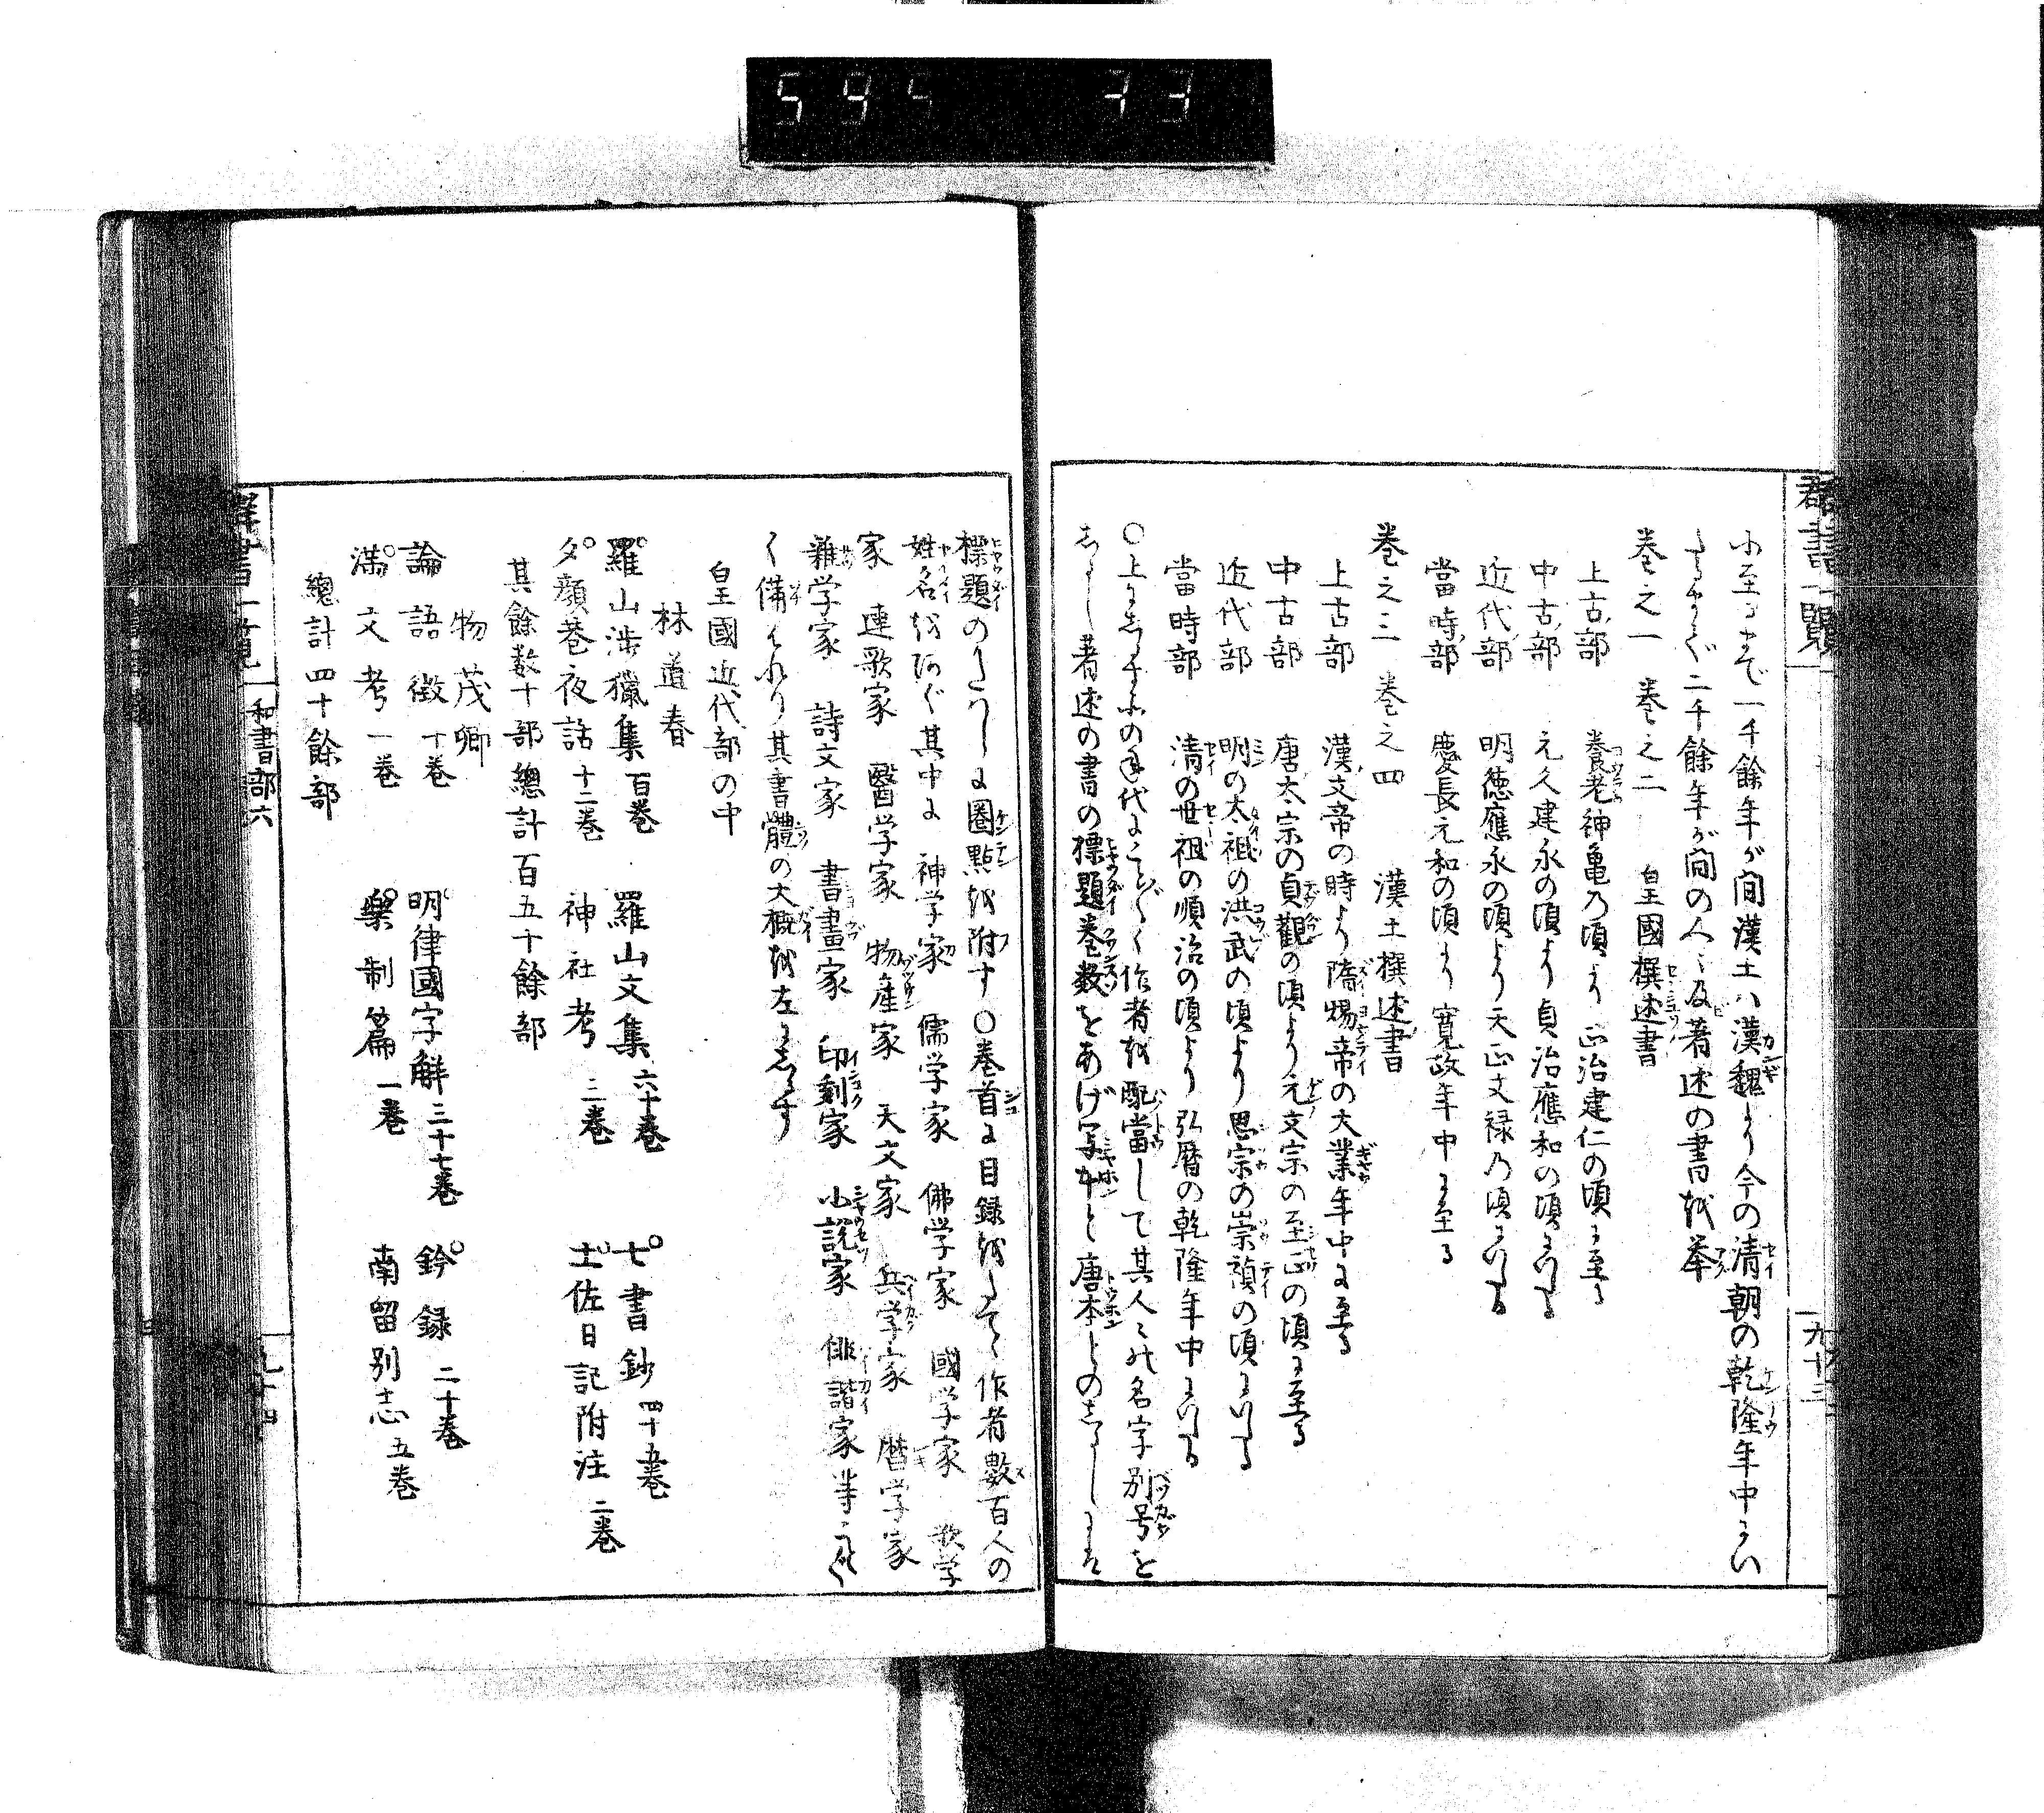 595 33
群書一覧 九十三
に至るまで一千餘年が間漢土ハ漢魏より今の清朝の乾隆年中に
二千餘年が間の人々及著述の書を挙
巻之一 巻之二 皇國撰述書
上古部 養老神亀の頃より正治建仁の頃に至る
中古部 元久建永の頃より貞治應和の頃にいたる
近代部 明徳應永の頃より天正文禄の頃にいたる
當時部 慶長元和の頃より寛政年中に至る
巻之三 巻之四 漢土撰述書
上古部 漢文帝の時より隋煬帝の大業年中に至る
中古部 唐太宗の貞觀の頃より元文宗の至正の頃に至る
近代部 明の太祖の洪武の頃より思宗の崇禎の頃にいたる
當時部 清の世祖の順治の頃より弘暦の乾隆年中にいたる
〇上にしるす所の年代にことごとく作者を配當して其人々の名字別号を
しるし著述の書の標題巻数をあげ写本と唐本とのしるしには
標題のかしらに圏點を附す〇巻首に目録をたてゝ作者數百人の
姓名をあぐ其中に 神学家 儒学家 佛学家 國学家 歌学
家 連歌家 醫学家 物産家 天文家 兵学家 暦学家
雜学家 詩文家 書畫家 印刻家 小説家 俳諧家等
く備はれり其書體の大概を左にしるす
皇國近代部の中
林道春
羅山渉獵集 百巻 羅山文集 六十巻 七書鈔 四十五巻
夕顔巷夜話 十二巻 神社考 三巻 土佐日記附注 二巻
其餘数十部總計百五十餘部
物茂卿
論語徴 十巻 明律國字解 三十七巻 鈐録 二十巻
滿文考 一巻 樂制篇 一巻 南留别志 五巻
總計四十餘部
群書一覧 和書部六 九十四